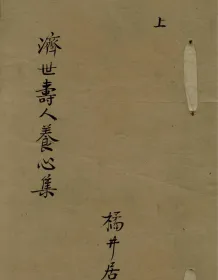 上
濟世壽人養心集
橘井居